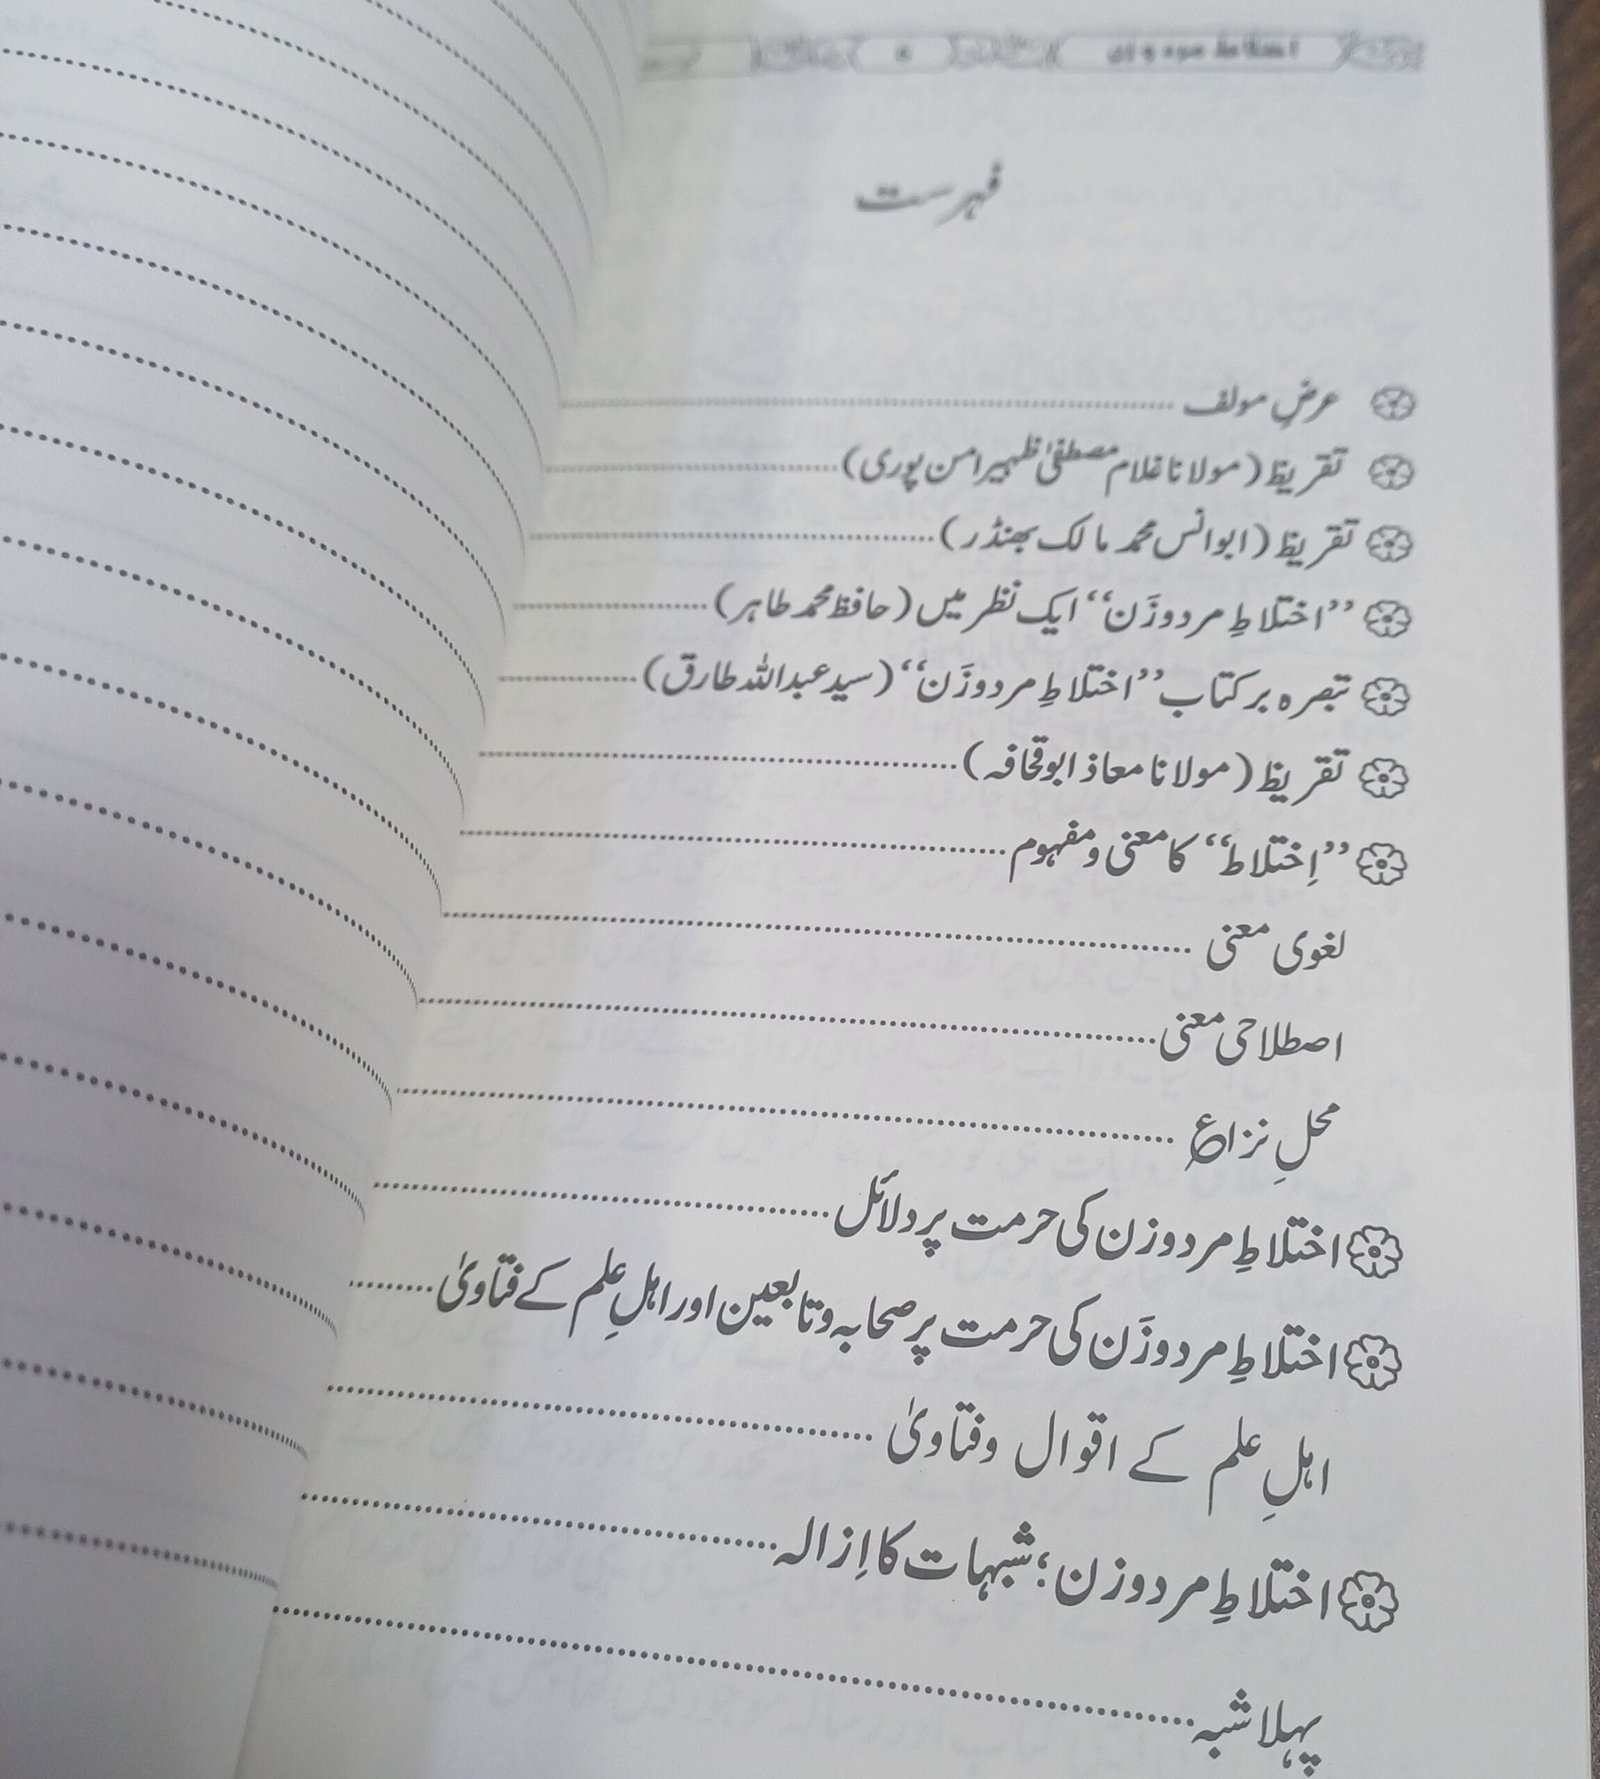 اختلاط مرد و زن
فہرست
عرضِ مولف
تقریظ (مولانا غلام مصطفیٰ ظہیر امن پوری)
تقریظ (ابو انس محمد مالک بھنڈر)
’’اختلاطِ مرد و زَن‘‘ ایک نظر میں (حافظ محمد طاہر)
تبصرہ بر کتاب ’’اختلاطِ مرد و زَن‘‘ (سید عبداللہ طارق)
تقریظ (مولانا معاذ ابو قحافہ)
’’اِختلاط‘‘ کا معنی و مفہوم
لغوی معنی
اصطلاحی معنی
محلِ نزاع
اختلاطِ مرد و زن کی حرمت پر دلائل
اختلاطِ مرد و زَن کی حرمت پر صحابہ و تابعین اور اہلِ علم کے فتاویٰ
اہلِ علم کے اقوال و فتاویٰ
اختلاطِ مرد و زن؛ شبہات کا اِزالہ
پہلا شبہ